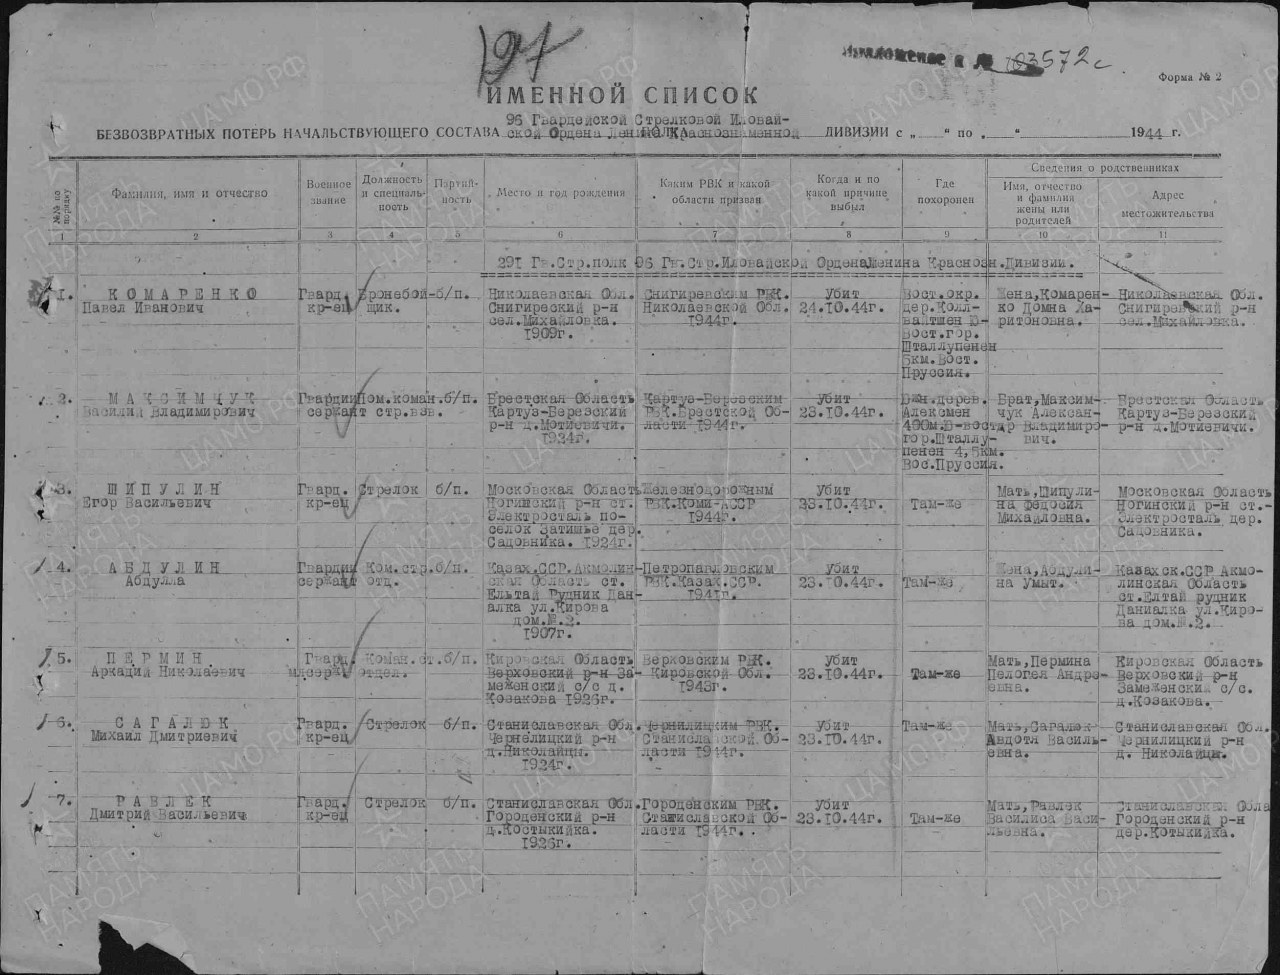 197
Приложение к № 103572с
Форма № 2
ИМЕННОЙ СПИСОК
96 Гвардейской Стрелковой Иловай-
БЕЗВОЗВРАТНЫХ ПОТЕРЬ НАЧАЛЬСТВУЮЩЕГО СОСТАВА ской Ордена Ленина Краснознаменной ДИВИЗИИ с „ “ по „ “ 1944 г.
Сведения о родственниках
№№ по порядку
Фамилия, имя и отчество
Военное звание
Должность и специальность
Партийность
Место и год рождения
Каким РВК и какой области призван
Когда и по какой причине выбыл
Где похоронен
Имя, отчество и фамилия жены или родителей
Адрес местожительства
1 2 3 4 5 6 7 8 9 10 11
291 Гв.Стр.полк 96 Гв.Стр.Иловайской Ордена Ленина Краснозн.Дивизии.
1. КОМАРЕНКО Гвард. Бронебой- б/п. Николаевская Обл. Снигиревским РВК. Убит Вост.окр. Жена,Комарен- Николаевская Обл.
Павел Иванович кр-ец щик. Снигиреский р-н Николаевской Обл. 24.10.44г. дер.Колл- ко Домна Ха- Снигиревский р-н
сел.Михайловка. 1944г. вайтшен Ю- ритоновна. сел.Михайловка.
1909г. Вост.гор.
Шталлупенен
5км.Вост.
Пруссия.
2. МАКСИМЧУК Гвардии Пом.коман. б/п. Брестская Область Картуз-Березским Убит Южн.дерев. Брат,Максим- Брестская Область
Василий Владимирович сержант стр.взв. Картуз-Березский РВК.Брестской Об- 23.10.44г. Алексмен чук Алексан- Картуз-Березский
р-н д.Мотиевичи. ласти 1944г. 400м.Ю-вост др Владимиро- р-н д.Мотиевичи.
1924г. гор.Шталлу- вич.
пенен 4,5км.
Вос.Пруссия.
3. ШИПУЛИН Гвард. Стрелок б/п. Московская Область Железнодорожным Убит Мать,Шипули- Московская Область
Егор Васильевич кр-ец Ногинский р-н ст. РВК.Коми-АССР 23.10.44г. Там-же на Федосия Ногинский р-н ст.-
Электросталь по- 1944г. Михайловна. Электросталь дер.
селок Затишье дер. Садовника.
Садовника. 1924г.
4. АБДУЛИН Гвардии Ком.стр. б/п. Казах.ССР.Акмолин- Петропавловским Убит Жена,Абдули- Казахск.ССР Акмо-
Абдулла сержант отд. ская Область ст. РВК.Казах.ССР. 23.10.44г. Там-же на Умыт. линская Область
Ельтай Рудник Дан- 1941г. ст.Елтай рудник
алка ул.Кирова Даниалка ул.Киро-
дом.№.2. ва дом.№.2.
1907г.
5. ПЕРМИН Гвард. Коман.ст. б/п. Кировская Область Верховским РВК. Убит Мать,Пермина Кировская Область
Аркадий Николаевич мл.серж. отдел. Верховский р-н За- Кировской Обл. 23.10.44г. Там-же Пелогея Андре- Верховский р-н
меженский с/с д. 1943г. евна. Замеженский с/с.
Козакова 1926г. д.Козакова.
6. САГАЛЕК Гвард. Стрелок б/п. Станиславская Обл. Чернилицким РВК. Убит Там-же Мать,Сагалек Станиславская Обл.
Михаил Дмитриевич кр-ец Чернелицкий р-н Станиславской Об- 23.10.44г. Авдотя Василь- Чернилицкий р-н
д.Николайцы. ласти 1944г. евна. д. Николайцы.
1924г.
7. РАВЛЕК Гвард. Стрелок б/п. Станиславская Обл. Городенским РВК. Убит Мать,Равлек Станиславская Обла
Дмитрий Васильевич кр-ец Городенский р-н Станиславской Об- 23.10.44г. Там-же Василиса Васи- Городенский р-н
д.Костыкийка. ласти 1944г. льевна. дер.Котыкийка.
1926г.